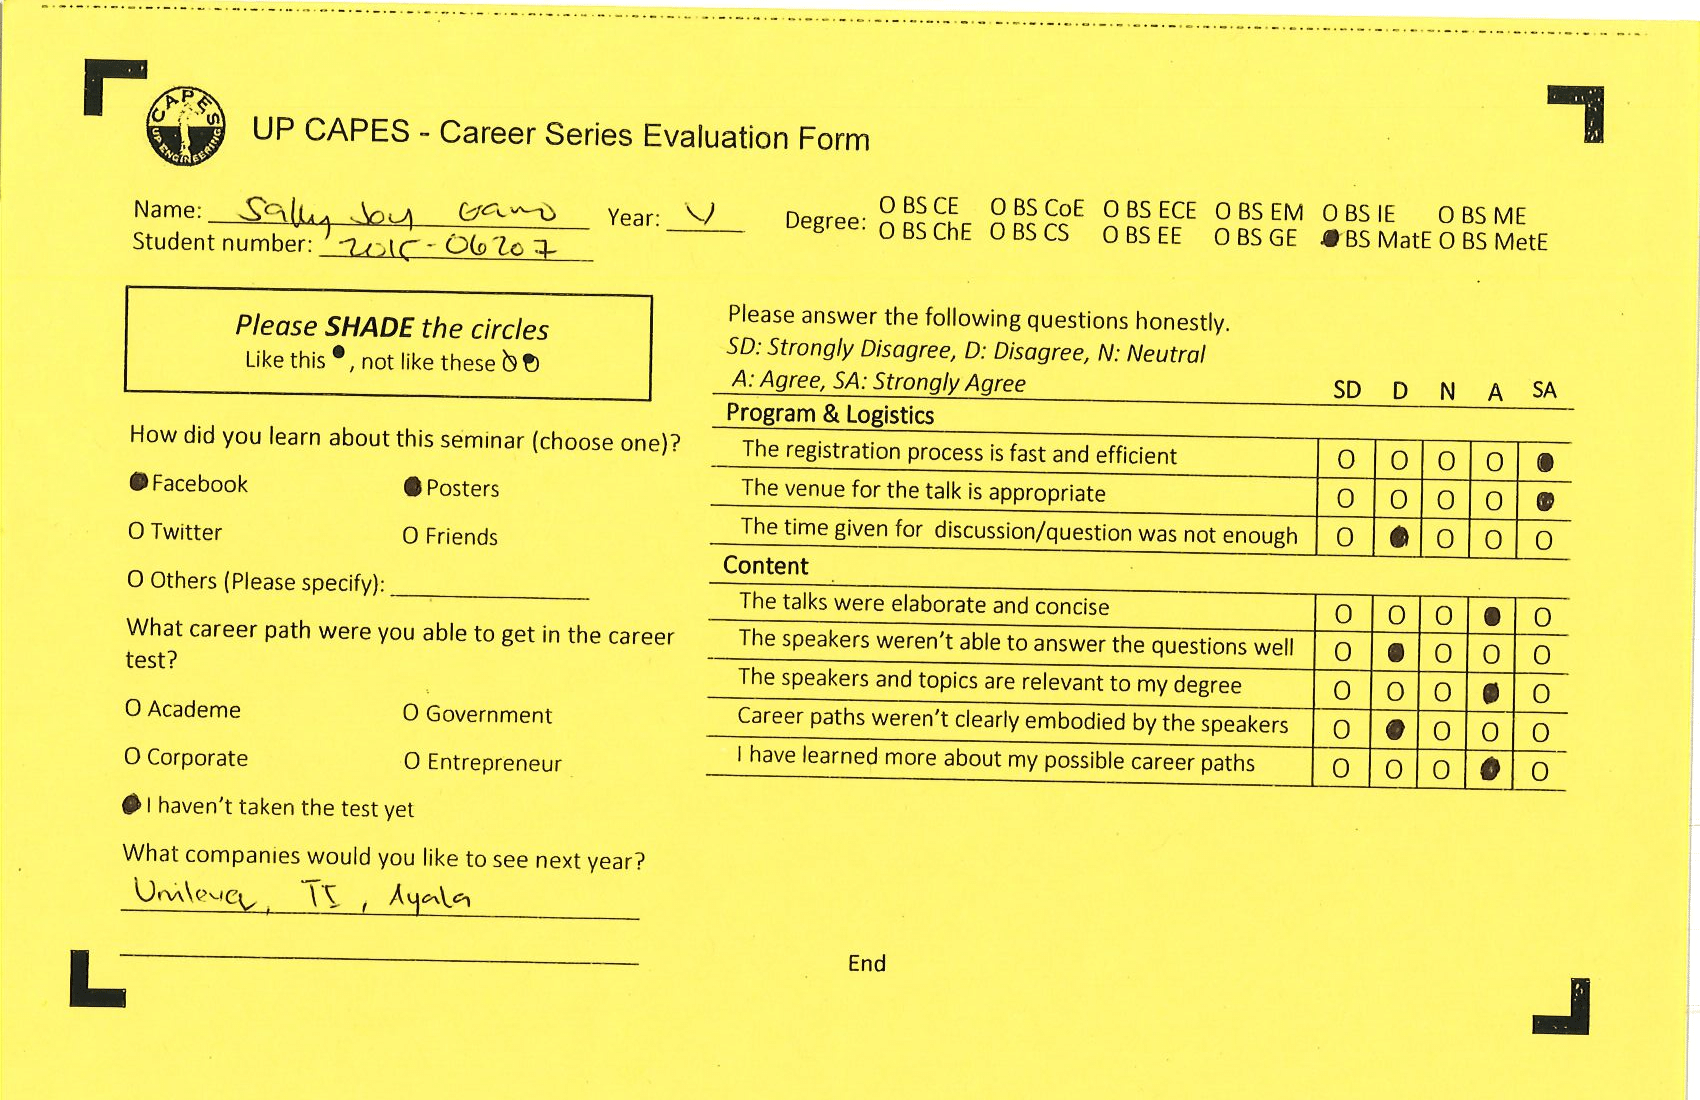 CAPES
UP ENGINEERING
UP CAPES - Career Series Evaluation Form
Name: Sally Joy Gano Year: V
Student number: 2015-06207
Degree: O BS CE O BS CoE O BS ECE O BS EM O BS IE O BS ME
O BS ChE O BS CS O BS EE O BS GE ● BS MatE O BS MetE
Please SHADE the circles
Like this ●, not like these
How did you learn about this seminar (choose one)?
● Facebook ● Posters
O Twitter O Friends
O Others (Please specify):
What career path were you able to get in the career
test?
O Academe O Government
O Corporate O Entrepreneur
● I haven't taken the test yet
What companies would you like to see next year?
Unilever, TI, Ayala
Please answer the following questions honestly.
SD: Strongly Disagree, D: Disagree, N: Neutral
A: Agree, SA: Strongly Agree SD D N A SA
Program & Logistics
The registration process is fast and efficient O O O O ●
The venue for the talk is appropriate O O O O ●
The time given for discussion/question was not enough O ● O O O
Content
The talks were elaborate and concise O O O ● O
The speakers weren't able to answer the questions well O ● O O O
The speakers and topics are relevant to my degree O O O ● O
Career paths weren't clearly embodied by the speakers O ● O O O
I have learned more about my possible career paths O O O ● O
End